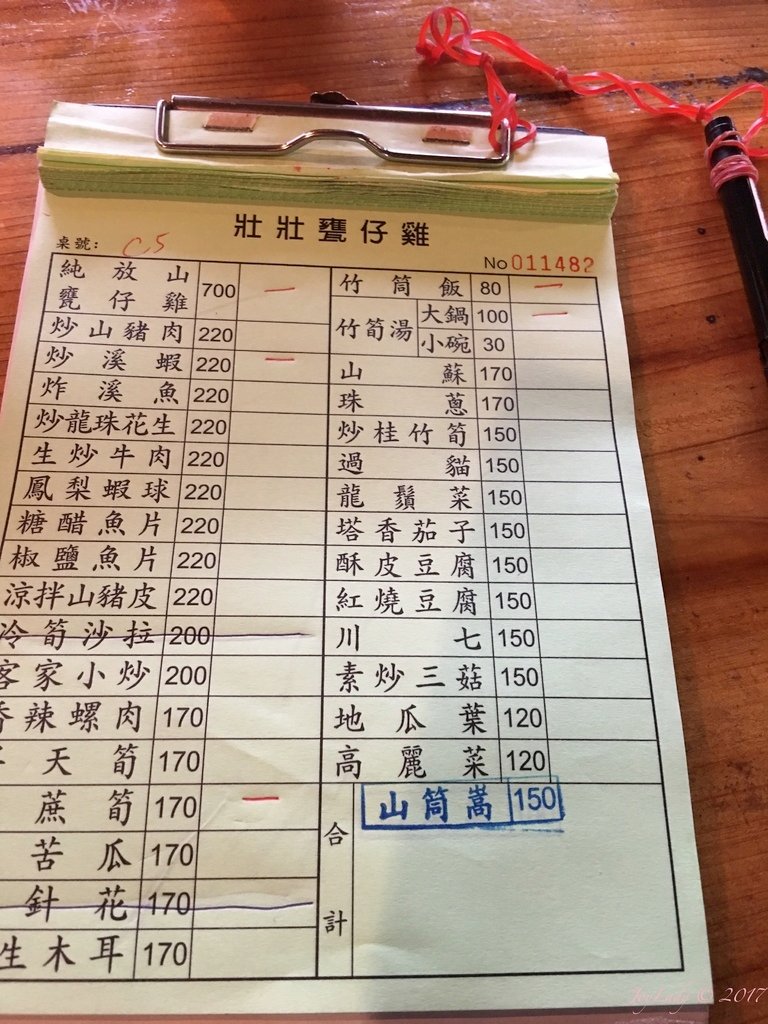 壯壯甕仔雞
桌號: C5
No 011482
純放山甕仔雞 700 一
炒山豬肉 220
炒溪蝦 220 一
炸溪魚 220
炒龍珠花生 220
生炒牛肉 220
鳳梨蝦球 220
糖醋魚片 220
椒鹽魚片 220
涼拌山豬皮 220
冷筍沙拉 200
客家小炒 200
香辣螺肉 170
天筍 170
蔗筍 170 一
苦瓜 170
針花 170
生木耳 170
竹筒飯 80 一
竹筍湯 大鍋 100 一
小碗 30
山蘇 170
珠蔥 170
炒桂竹筍 150
過貓 150
龍鬚菜 150
塔香茄子 150
酥皮豆腐 150
紅燒豆腐 150
川七 150
素炒三菇 150
地瓜葉 120
高麗菜 120
合計
山筒蒿 150
© 2017